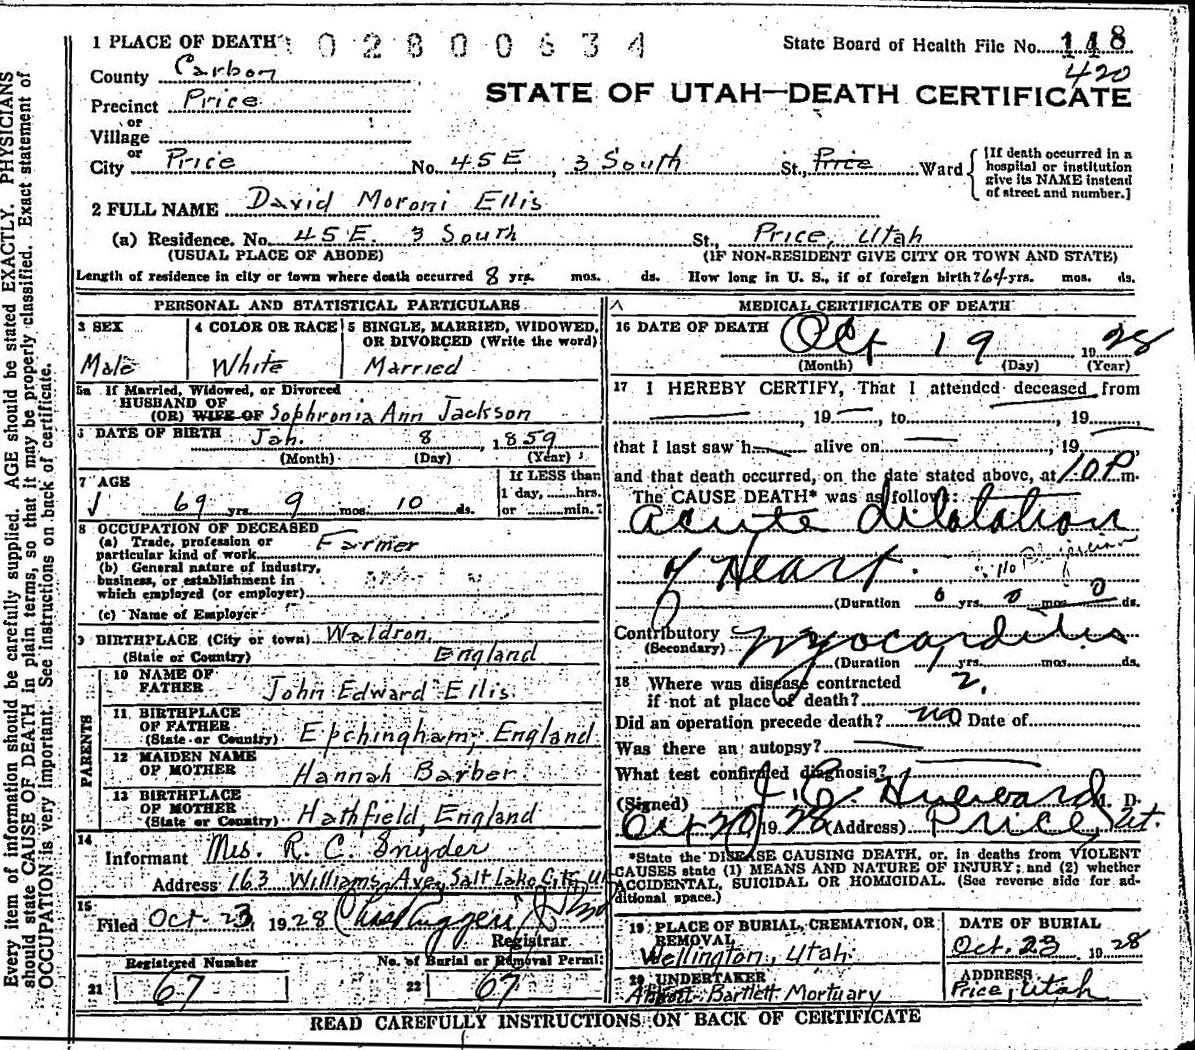 1 PLACE OF DEATH 02800634 State Board of Health File No. 118
420
County Carbon
STATE OF UTAH—DEATH CERTIFICATE
Precinct Price
or
Village
or
City Price No. 45 E, 3 South St., Price Ward
[If death occurred in a
hospital or institution
give its NAME instead
of street and number.]
2 FULL NAME David Moroni Ellis
(a) Residence. No. 45 E. 3 South St., Price, Utah
(USUAL PLACE OF ABODE) (IF NON-RESIDENT GIVE CITY OR TOWN AND STATE)
Length of residence in city or town where death occurred 8 yrs. mos. ds. How long in U. S., if of foreign birth? 64 yrs. mos. ds.
PERSONAL AND STATISTICAL PARTICULARS
3 SEX
Male
4 COLOR OR RACE
White
5 SINGLE, MARRIED, WIDOWED,
OR DIVORCED (Write the word)
Married
5a If Married, Widowed, or Divorced
HUSBAND OF
(OR) WIFE OF Sophronia Ann Jackson
6 DATE OF BIRTH Jan. 8, 1859
(Month) (Day) (Year)
7 AGE
69 yrs. 9 mos. 10 ds.
If LESS than
1 day, hrs.
or min.?
8 OCCUPATION OF DECEASED
(a) Trade, profession or
particular kind of work Farmer
(b) General nature of industry,
business, or establishment in
which employed (or employer)
(c) Name of Employer
9 BIRTHPLACE (City or town) Waldron
(State or Country) England
PARENTS
10 NAME OF
FATHER John Edward Ellis
11 BIRTHPLACE
OF FATHER
(State or Country) Epchingham, England
12 MAIDEN NAME
OF MOTHER Hannah Barber
13 BIRTHPLACE
OF MOTHER
(State or Country) Hathfield, England
14
Informant Mrs. R. C. Snyder
Address 163 Williams Ave, Salt Lake City, Ut
15
Filed Oct. 23 1928
Registrar
Registered Number
21 67
No. of Burial or Removal Permit
22 67
MEDICAL CERTIFICATE OF DEATH
16 DATE OF DEATH Oct 19 1928
(Month) (Day) (Year)
17 I HEREBY CERTIFY, That I attended deceased from
, 19 , to , 19 ,
that I last saw h alive on , 19 ,
and that death occurred, on the date stated above, at 10 P m.
The CAUSE DEATH* was as follows:
Acute dilatation
of Heart. no Physician
(Duration 0 yrs. 0 mos. 0 ds.
Contributory Myocarditis
(Secondary) (Duration yrs. mos. ds.
18 Where was disease contracted
if not at place of death? ?
Did an operation precede death? no Date of
Was there an autopsy?
What test confirmed diagnosis?
(Signed) M. D.
Oct 20 1928 (Address) Price, Ut.
*State the DISEASE CAUSING DEATH, or, in deaths from VIOLENT
CAUSES state (1) MEANS AND NATURE OF INJURY; and (2) whether
ACCIDENTAL, SUICIDAL OR HOMICIDAL. (See reverse side for ad-
ditional space.)
19 PLACE OF BURIAL, CREMATION, OR
REMOVAL
Wellington, Utah
DATE OF BURIAL
Oct. 23 1928
20 UNDERTAKER
Bartlett Mortuary
ADDRESS
Price, Utah
READ CAREFULLY INSTRUCTIONS ON BACK OF CERTIFICATE
Every item of information should be carefully supplied. AGE should be stated EXACTLY. PHYSICIANS
should state CAUSE OF DEATH in plain terms, so that it may be properly classified. Exact statement of
OCCUPATION is very important. See instructions on back of certificate.